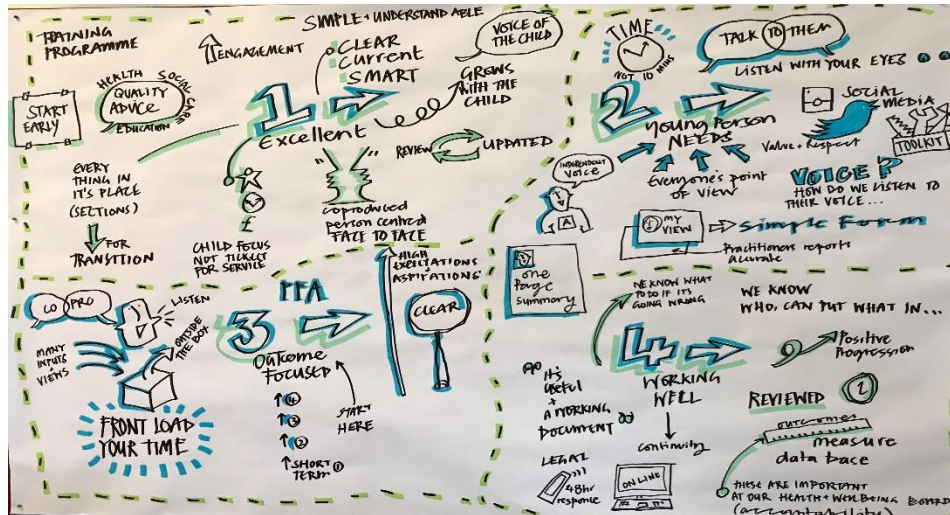 TRAINING
PROGRAMME
ENGAGEMENT
SIMPLE + UNDERSTANDABLE
CLEAR
Current
SMART
VOICE OF
THE CHILD
GROWS
WITH THE
CHILD
START
EARLY
HEALTH SOCIAL CARE
QUALITY
ADVICE
EDUCATION
1
Excellent
REVIEW
UPDATED
EVERY
THING IN
IT'S PLACE
(SECTIONS)
FOR
TRANSITION
£
CHILD FOCUS
NOT TICKET
FOR SERVICE
coproduced
person centred
FACE TO FACE
TIME
NOT 10 MINS
TALK TO THEM
LISTEN WITH YOUR EYES
2
YOUNG PERSON
NEEDS
SOCIAL
MEDIA
Value + Respect
TOOLKIT
INDEPENDENT
VOICE
A
Everyone's point
of view
VOICE?
HOW DO WE LISTEN TO
THEIR VOICE...
MY
VIEW
Simple Form
Practitioners reports
accurate
one
page
summary
CO PRO
LISTEN
MANY
INPUTS
+ VIEWS
OUTSIDE
THE BOX
FRONT LOAD
YOUR TIME
PFA
3
OUTCOME
FOCUSED
4
3
2
SHORT
TERM 1
START
HERE
HIGH
EXPECTATIONS
+
ASPIRATIONS
CLEAR
WE KNOW WHAT
TO DO IF IT'S
GOING WRONG
WE KNOW
WHO, CAN PUT WHAT IN...
4
WORKING
WELL
Positive
Progression
IT'S
USEFUL
+
A WORKING
DOCUMENT
continuity
LEGAL
48hr
response
ONLINE
REVIEWED
outcomes
measure
data bace
THESE ARE IMPORTANT
AT OUR HEALTH + WELLBEING BOARD
(accountability)